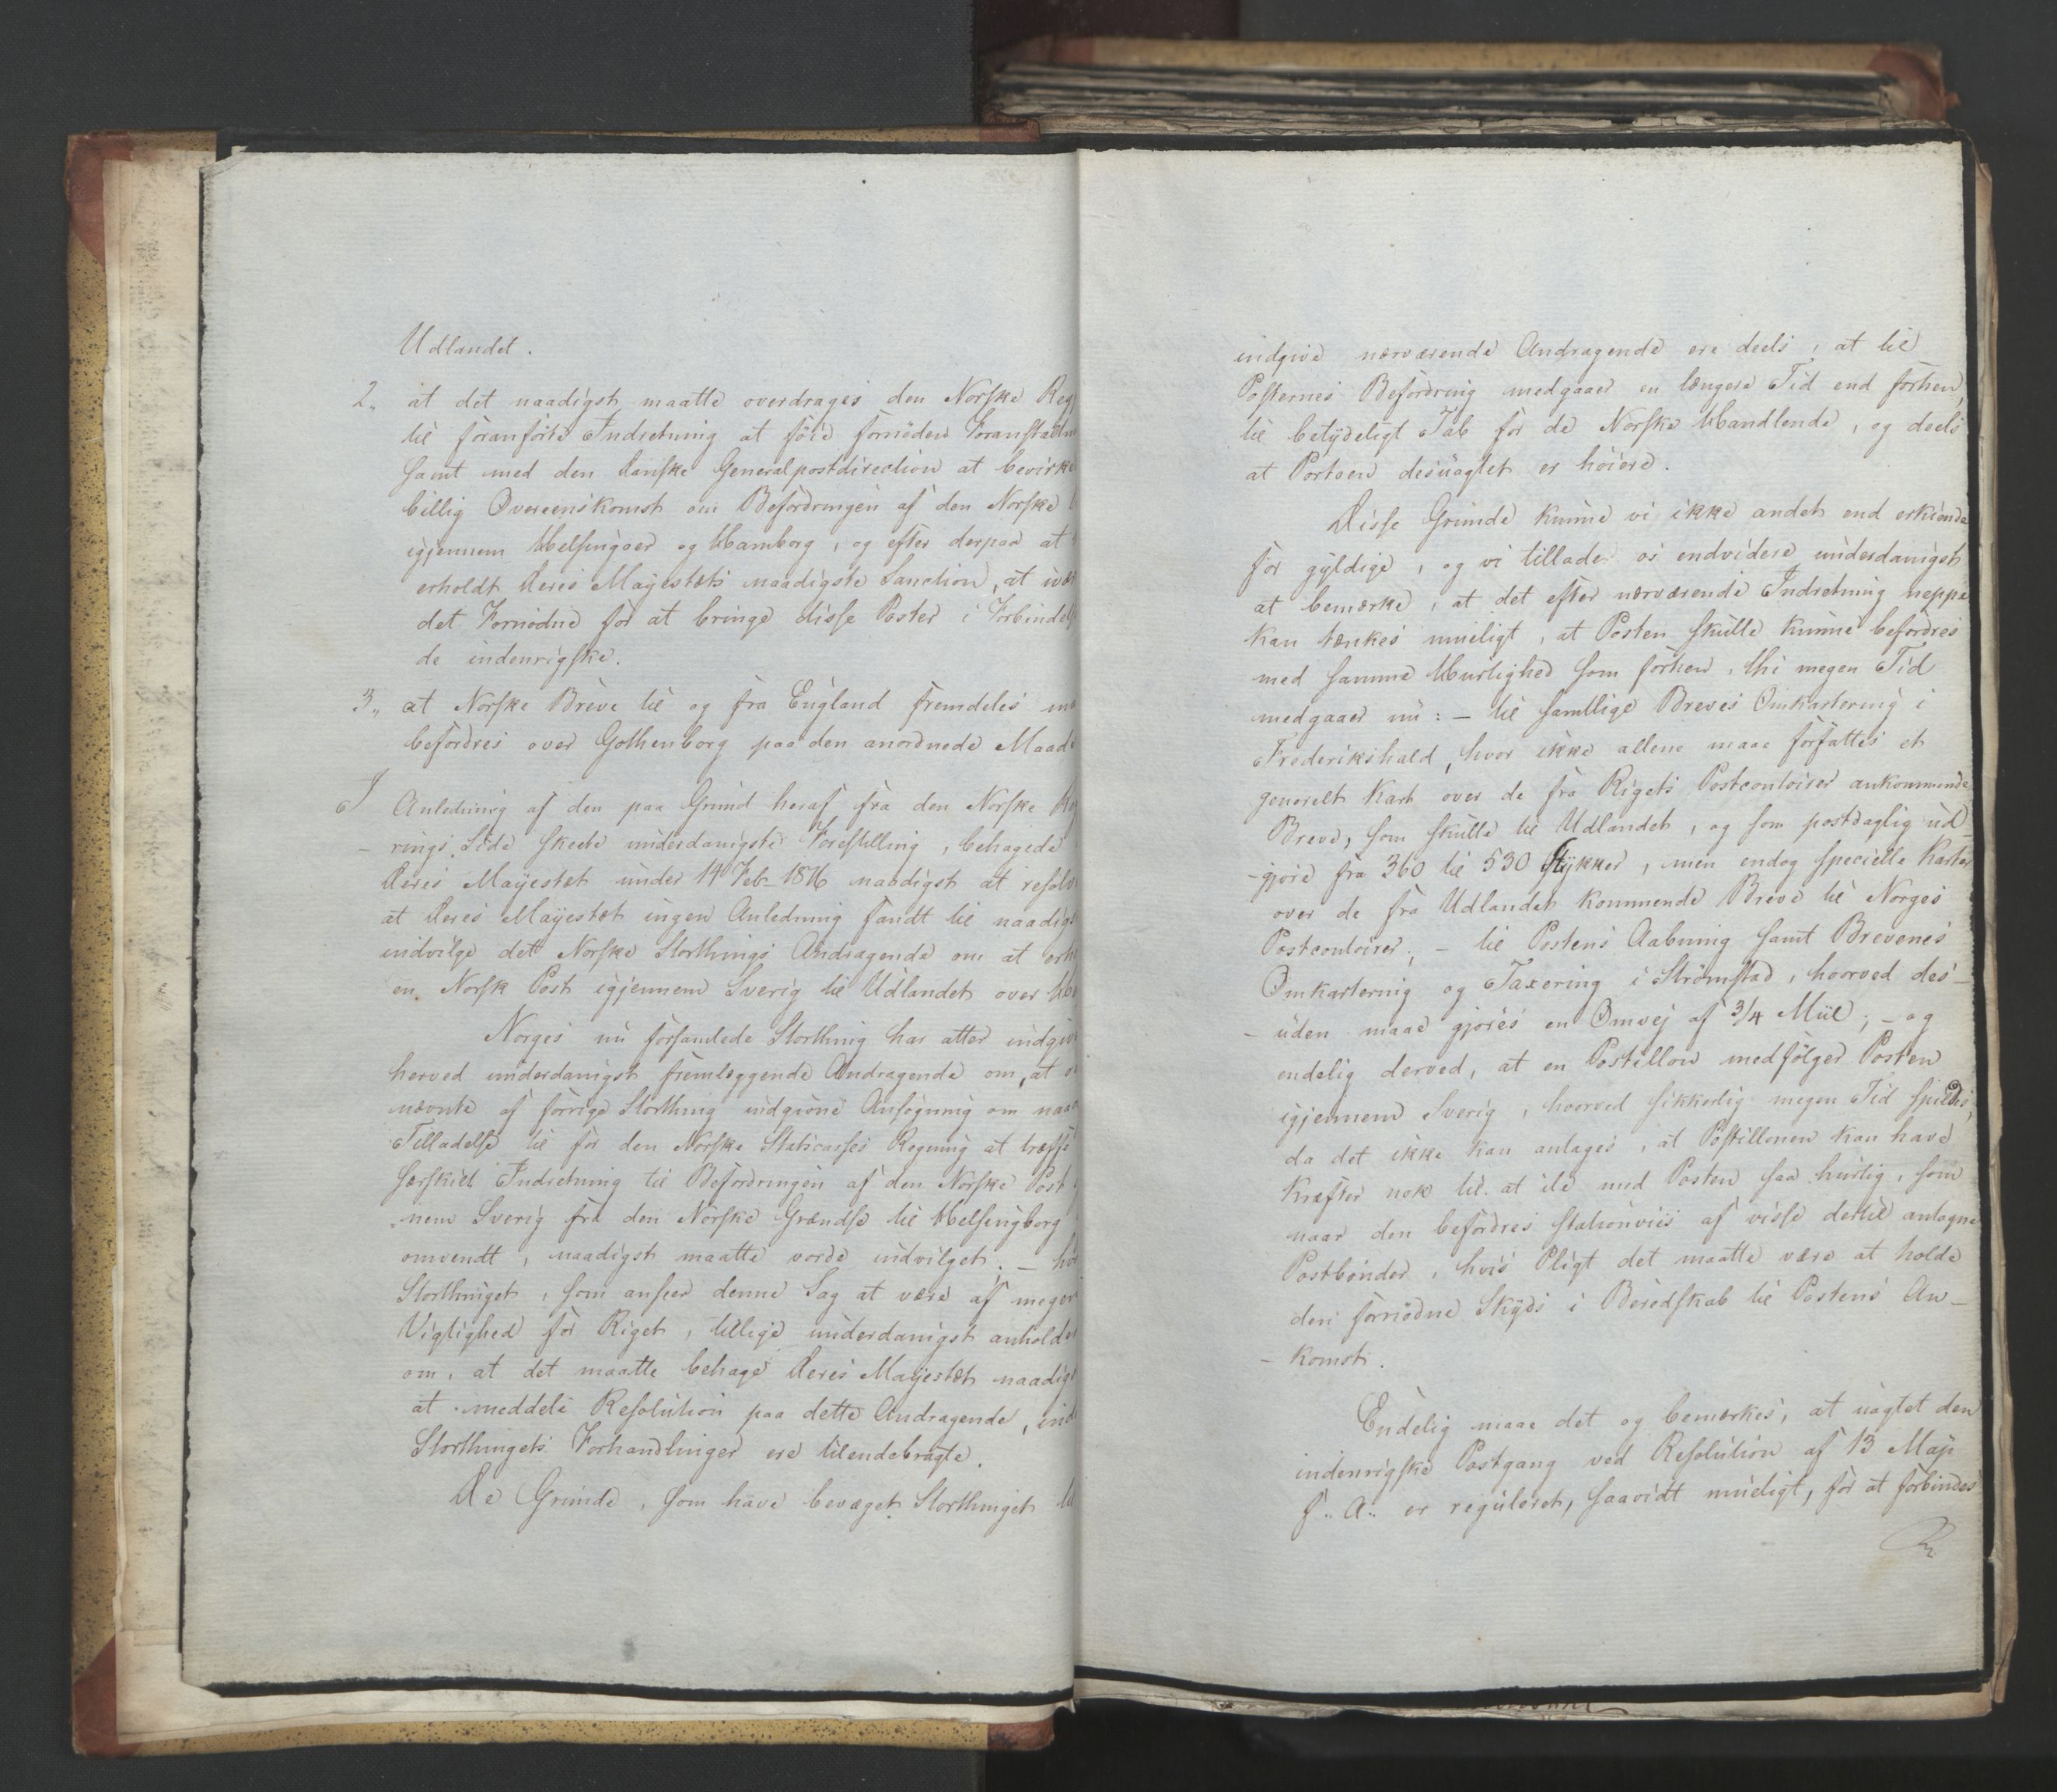 Udlandet.
2,, at det naadigst maatte overdrages den Norske Reg
til foranførte Indretning at föie fornöden Foranstaltn
samt med den danske Generalpostdirection at bevirke
billig Overeenskomst om Befordringen af den Norske
igjennem Helsingöer og Hamborg, og efter derpaa at
erholdt Deres Mayestæts naadigste Sanction, at ivær
det Fornödne for at bringe disse Poster i Forbindels
de indenrigske.
3,, at Norske Breve til og fra England fremdeles maa
befordres over Gothenborg paa den anordnede Maade
I Anledning af den paa Grund heraf fra den Norske Reg
- rings Side skeete underdanigste Forestilling, behagede
Deres Mayestæt under 14 Feb- 1816 naadigst at resolv
at Deres Mayestæt ingen Anledning fandt til naadigst
indvilge det Norske Storthings Andragende om at erho
en Norsk Post igjennem Sverig til Udlandet over
Norges nu forsamlede Storthing har atter indgiv
herved underdanigst fremlæggende Andragende om, at
nævnte af forrige Storthing indgivne Ansøgning om naad
Tilladelse til for den Norske Statscasses Regning at træffe
særskilt Indretning til Befordringen af den Norske Post
nem Sverig fra den Norske Grændse til Helsingborg
omvendt, naadigst maatte vorde indvilget; -
Storthinget, som anseer denne Sag at være af megen
Vigtighed for Riget, tillige underdanigst anholder
om, at det maatte behage Deres Mayestæt naadigst
at meddele Resolution paa dette Andragende, inde
Storthingets Forhandlinger ere tilendebragte.
De Grunde, som have bevæget Storthinget til
indgive nærværende Andragende ere deels, at til
Posternes Befordring medgaaer en længere Tid end forhen,
til betydeligt Tab for de Norske Handlende, og deels
at Portoen desuagtet er höiere.
Disse Grunde kunne vi ikke andet end erkiende
for gyldige, og vi tillade os endvidere underdanigst
at bemærke, at det efter nærværende Indretning neppe
kan tænkes mueligt, at Posten skulle kunne befordres
med samme Hurtighed som forhen, thi megen Tid
medgaaer nu: - til samtlige Breves Omkartering i
Frederikshald, hvor ikke allene maae forfattes et
generelt Kart over de fra Rigets Postcontoirer ankommende
Breve, som skulle til Udlandet, og som postdaglig ud-
- gjøre fra 360 til 530 Stykker, men endog specielle Karter
over de fra Udlandet kommende Breve til Norges
Postcontoirer; - til Postens Aabning samt Brevenes
Omkartering og Taxering i Strömstad, hvorved des-
- uden maae gjøres en Omvej af 3/4 Miil; - og
endelig derved, at en Postillon medfølger Posten
igjennem Sverig, hvorved sikkerlig megen Tid spildes,
da det ikke kan antages, at Postillonen kan have
Kræfter nok til at ile med Posten saa hurtig, som
naar den befordres stationviis af visse dertil antagne
Postbönder, hvis Pligt det maatte være at holde
den fornödne Skyds i Beredskab til Postens An-
- komst.
Endelig maae det og bemærkes, at uagtet den
indenrigske Postgang ved Resolution af 13 May
f. A. er reguleret, saavidt mueligt, for at forbindes